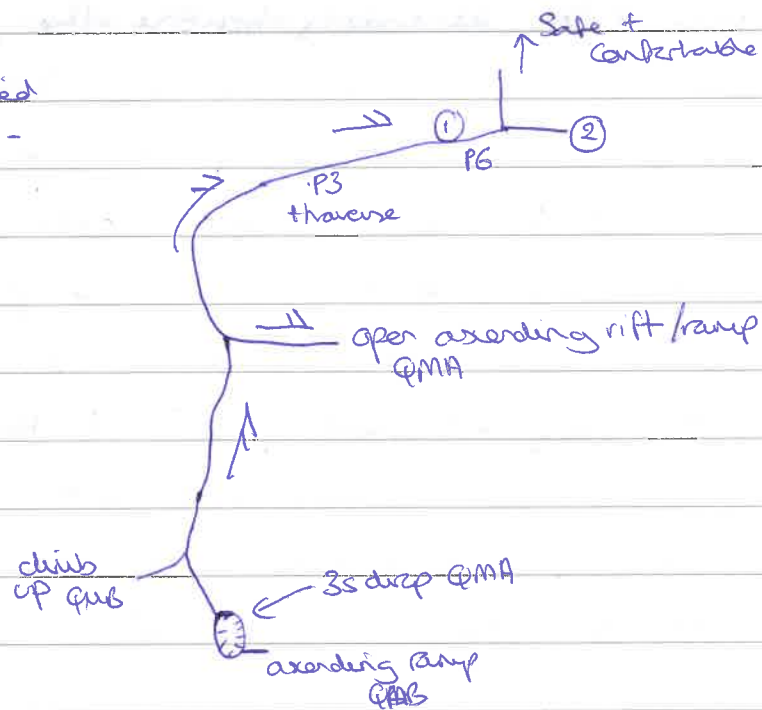 Safe +
Comfortable
ed
-
①
②
P6
P3
traverse
open ascending rift/ramp
QMA
climb
up QMB
3s drop QMA
ascending ramp
QMB